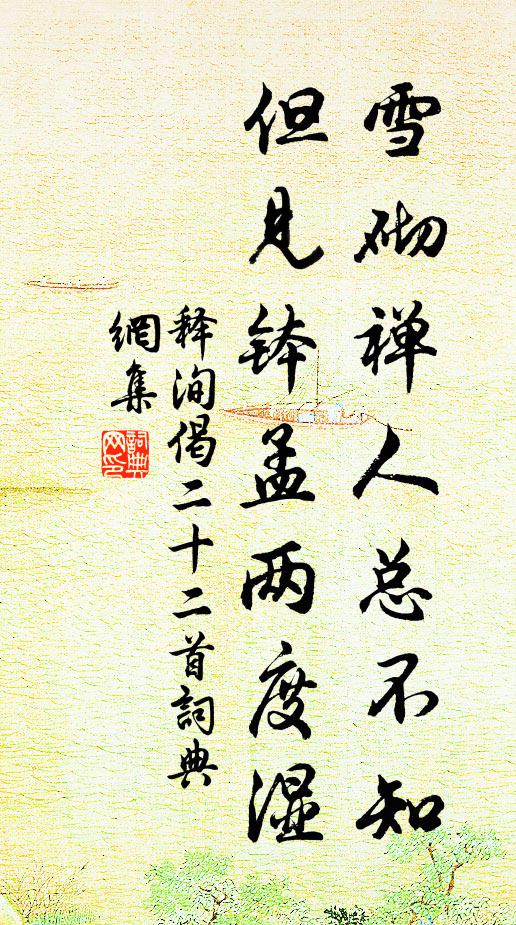 雪砌禅人总不知
但见钵孟两度湿
释洵偈二十二首詞典
網集
詞典
网印